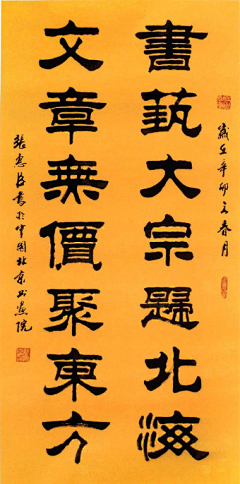 歲在辛卯之春月
書藝大宗歸北海
文章無價聚東方
張惠書於中國北京書畫院